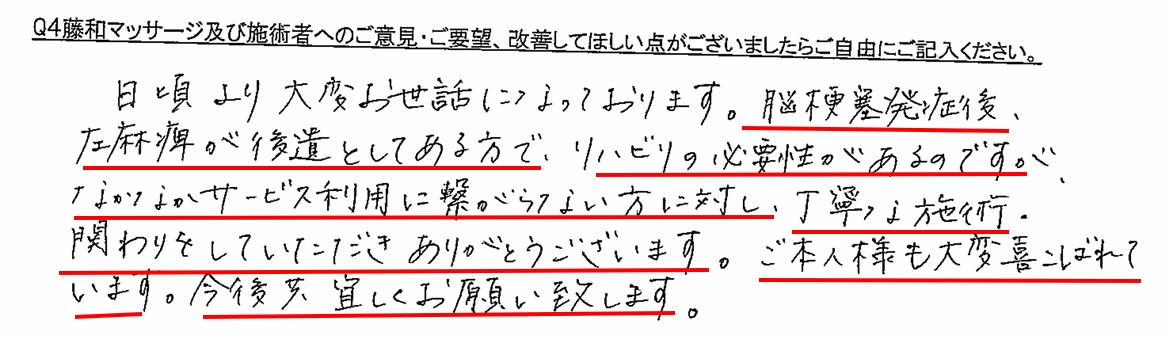 Q4藤和マッサージ及び施術者へのご意見・ご要望、改善してほしい点がございましたらご自由にご記入ください。
日頃より大変お世話になっております。脳梗塞発症後、
左麻痺が後遺としてある方で、リハビリの必要性があるのですが、
なかなかサービス利用に繋がらない方に対し、丁寧な施術・
関わりをしていただきありがとうございます。ご本人様も大変喜こばれて
います。今後共宜しくお願い致します。